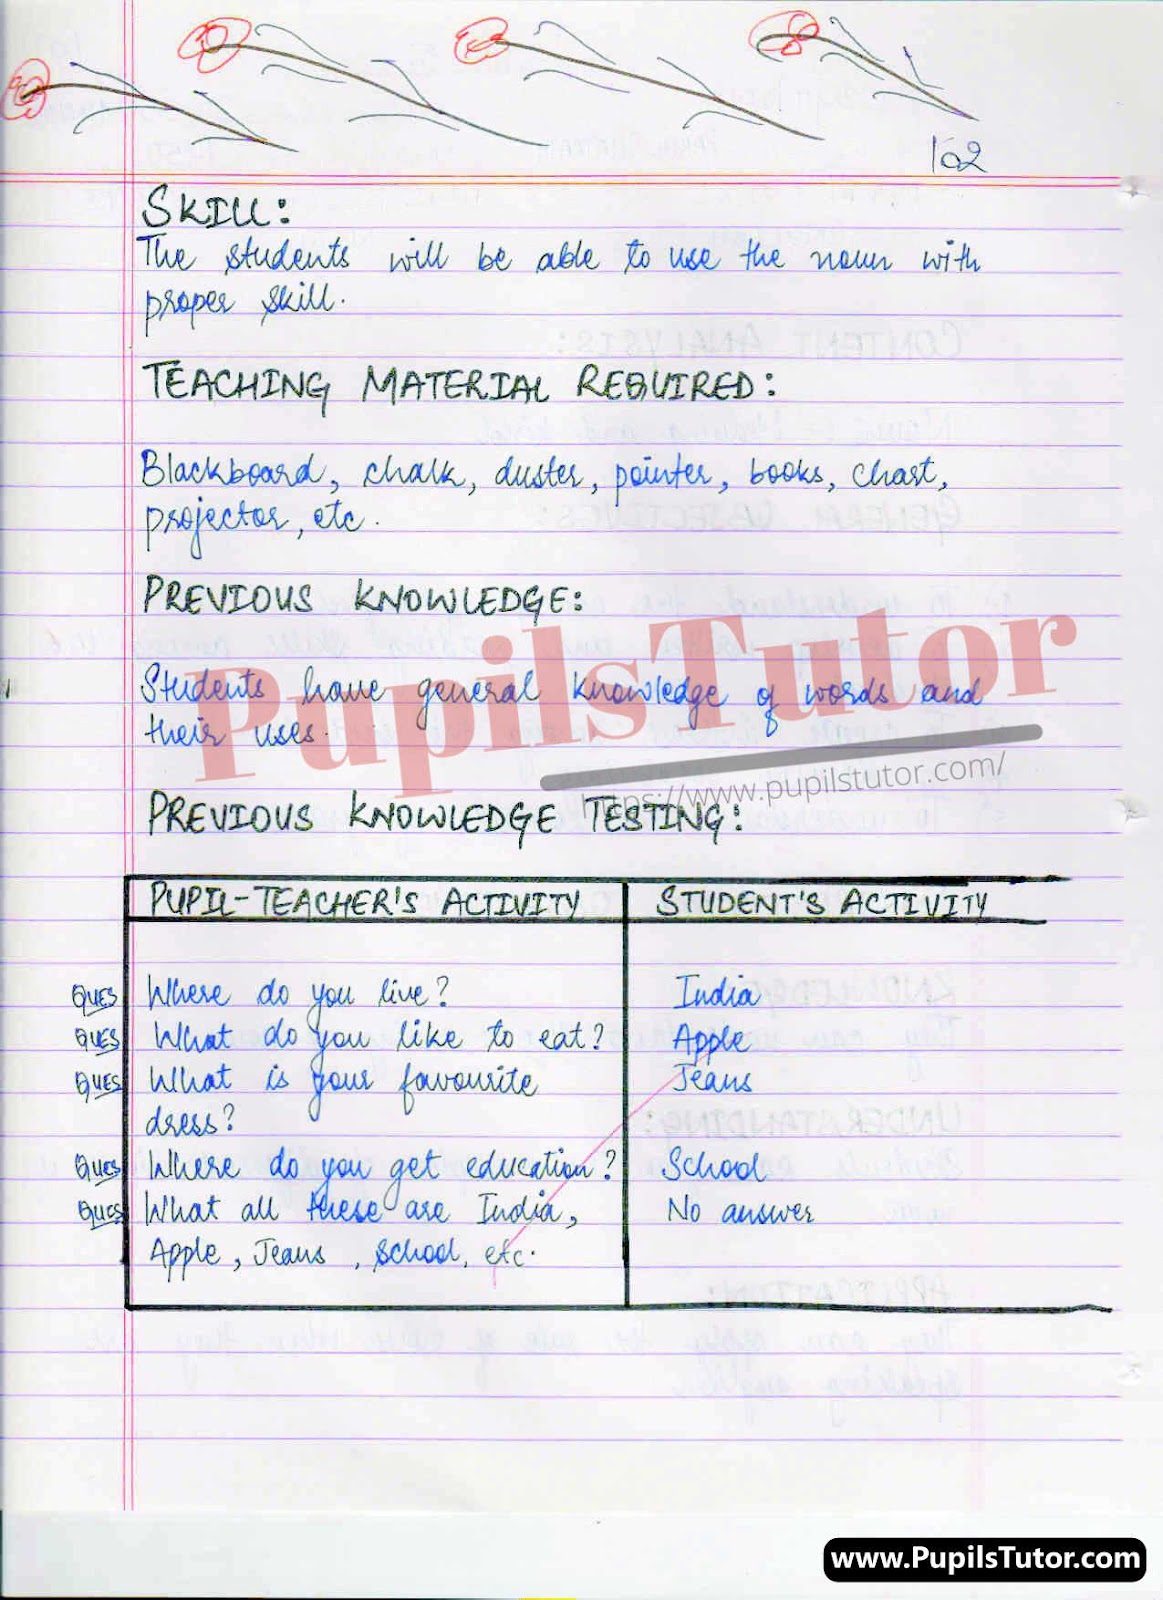 102
SKILL:
The students will be able to use the noun with
proper skill.
TEACHING MATERIAL REQUIRED:
Blackboard, chalk, duster, pointer, books, chart,
projector, etc.
PREVIOUS KNOWLEDGE:
Students have general knowledge of words and
their uses.
PupilsTutor
https://www.pupilstutor.com/
PREVIOUS KNOWLEDGE TESTING:
PUPIL-TEACHER'S ACTIVITY STUDENT'S ACTIVITY
QUES Where do you live? India
QUES What do you like to eat? Apple
QUES What is your favourite Jeans
dress?
QUES Where do you get education? School
QUES What all these are India, No answer
Apple, Jeans, School, etc.
www.PupilsTutor.com